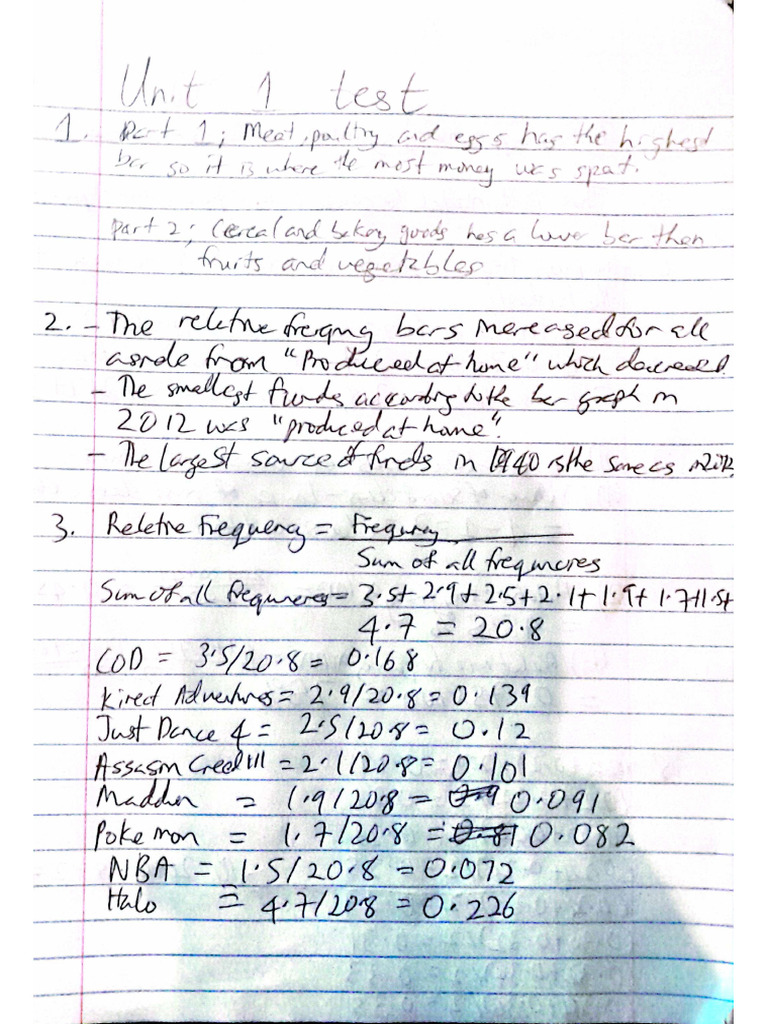 Unit 1 test
1. Part 1; Meat, poultry and eggs has the highest
bar so it is where the most money was spat.
Part 2; Cereal and bakery goods has a lower bar then
fruits and vegetables
2. - The reletive freqency bars increased for all
aside from "Produced at home" which decreased.
- The smallest funds according to the bar graph in
2012 was "produced at home".
- The largest source of funds in 1940 is the same as in 2012.
3. Reletive Frequency = Frequency
Sum of all frequencies
Sum of all frequencies = 3.5+ 2.9+2.5+2.1+1.9+1.7+1.5+
4.7 = 20.8
COD = 3.5/20.8 = 0.168
Kinect Adventures = 2.9/20.8 = 0.139
Just Dance 4 = 2.5/20.8 = 0.12
Assasin Creed III = 2.1/20.8 = 0.101
Madden = 1.9/20.8 = 0.091
Pokemon = 1.7/20.8 = 0.082
NBA = 1.5/20.8 = 0.072
Halo = 4.7/20.8 = 0.226